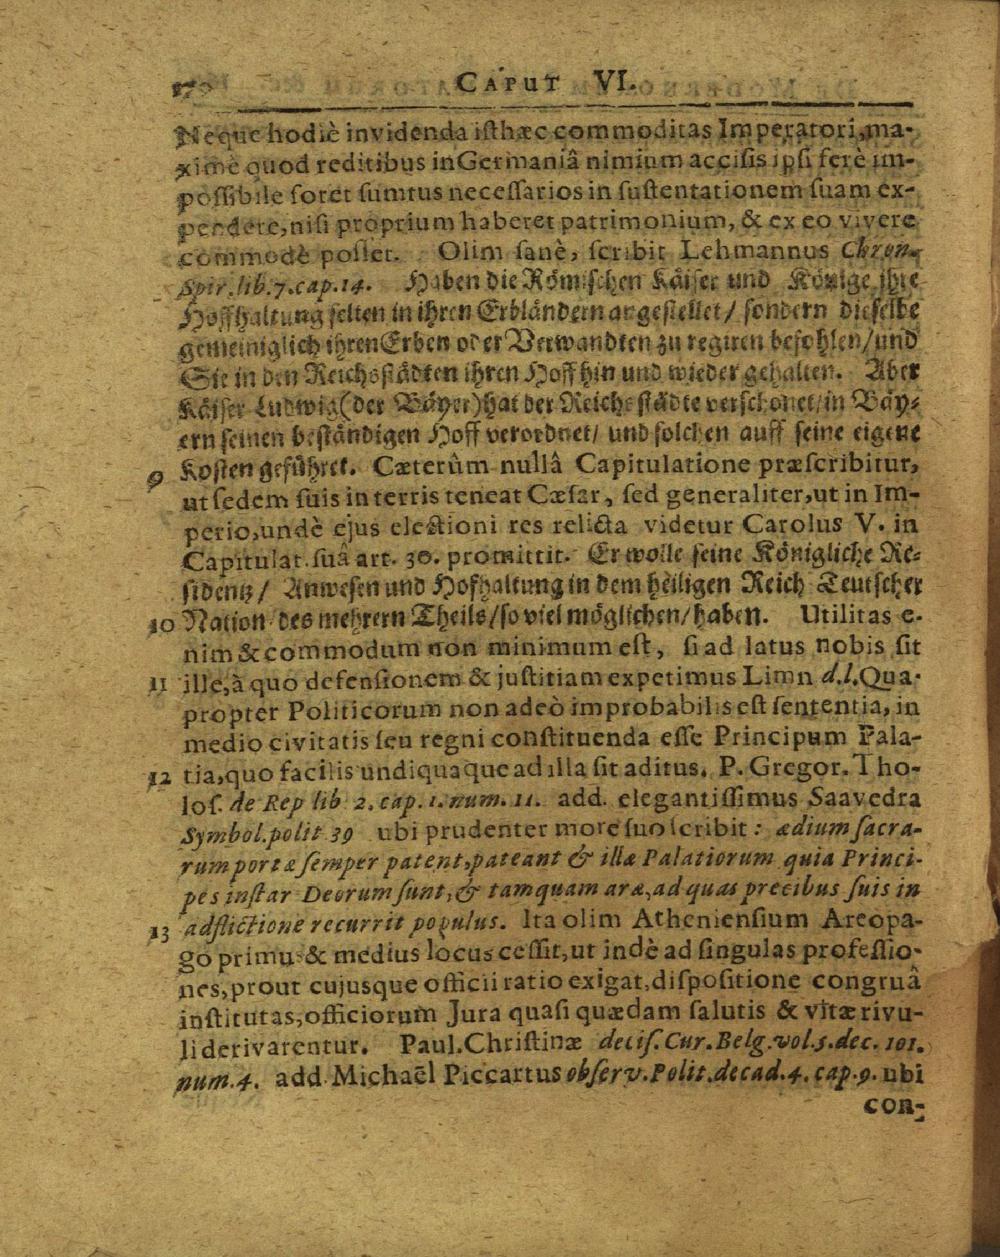 170 CAPUT VI.
Neque hodiè invidenda isthæc commoditas Imperatori, ma-
ximè quod reditibus in Germaniâ nimium accisis ipsi ferè im-
possibile foret sumtus necessarios in sustentationem suam ex-
pendere, nisi proprium haberet patrimonium, & ex eo vivere
commodè posset. Olim sanè, scribit Lehmannus Chron.
Spir. lib. 7. cap. 14. Haben die Römischen Käiser und Könige ihre
Hoffhaltung selten in ihren Erbländern angestellet/ sondern dieselbe
gemeiniglich ihren Erben oder Verwandten zu regiren befohlen/ und
Sie in den Reichsstädten ihren Hoff hin und wieder gehalten. Aber
Käiser Ludwig (der Bäyer) hat der Reichsstädte verschonet/ in Bäy-
ern seinen beständigen Hoff verordnet/ und solchen auff seine eigene
9 Kosten geführet. Cæterùm nullâ Capitulatione præscribitur,
ut sedem suis in terris teneat Cæsar, sed generaliter, ut in Im-
perio, undè ejus electioni res relicta videtur Carolus V. in
Capitulat. suâ art. 30. promittit. Er wolle seine Königliche Re-
sidentz/ Anwesen und Hofhaltung in dem heiligen Reich Teutscher
10 Nation des mehrern Theils/ so viel möglichen/ haben. Utilitas e-
nim & commodum non minimum est, si ad latus nobis sit
11 ille, à quo defensionem & justitiam expetimus Limn d.l. Qua-
propter Politicorum non adeò improbabilis est sententia, in
medio civitatis seu regni constituenda esse Principum Pala-
12 tia, quo facilis undiquaque ad illa sit aditus. P. Gregor. Tho-
los. de Rep lib 2. cap. 1. num. 11. add. elegantissimus Saavedra
Symbol. polit 39 ubi prudenter more suo scribit: ædium sacra-
rum portæ semper patent, pateant & illæ Palatiorum quia Princi-
pes instar Deorum sunt, & tamquam aræ, ad quas precibus suis in
13 adflictione recurrit populus. Ita olim Atheniensium Areopa-
go primus & medius locus cessit, ut indè ad singulas professio-
nes, prout cujusque officii ratio exigat, dispositione congruâ
institutas, officiorum Jura quasi quædam salutis & vitæ rivu-
li derivarentur. Paul. Christinæ decis. Cur. Belg. vol. 5. dec. 101.
num. 4. add. Michaël Piccartus observ. Polit. decad. 4. cap. 9. ubi
con-